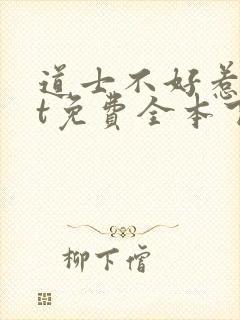 道士不好惹
t免费全本下
柳下僧